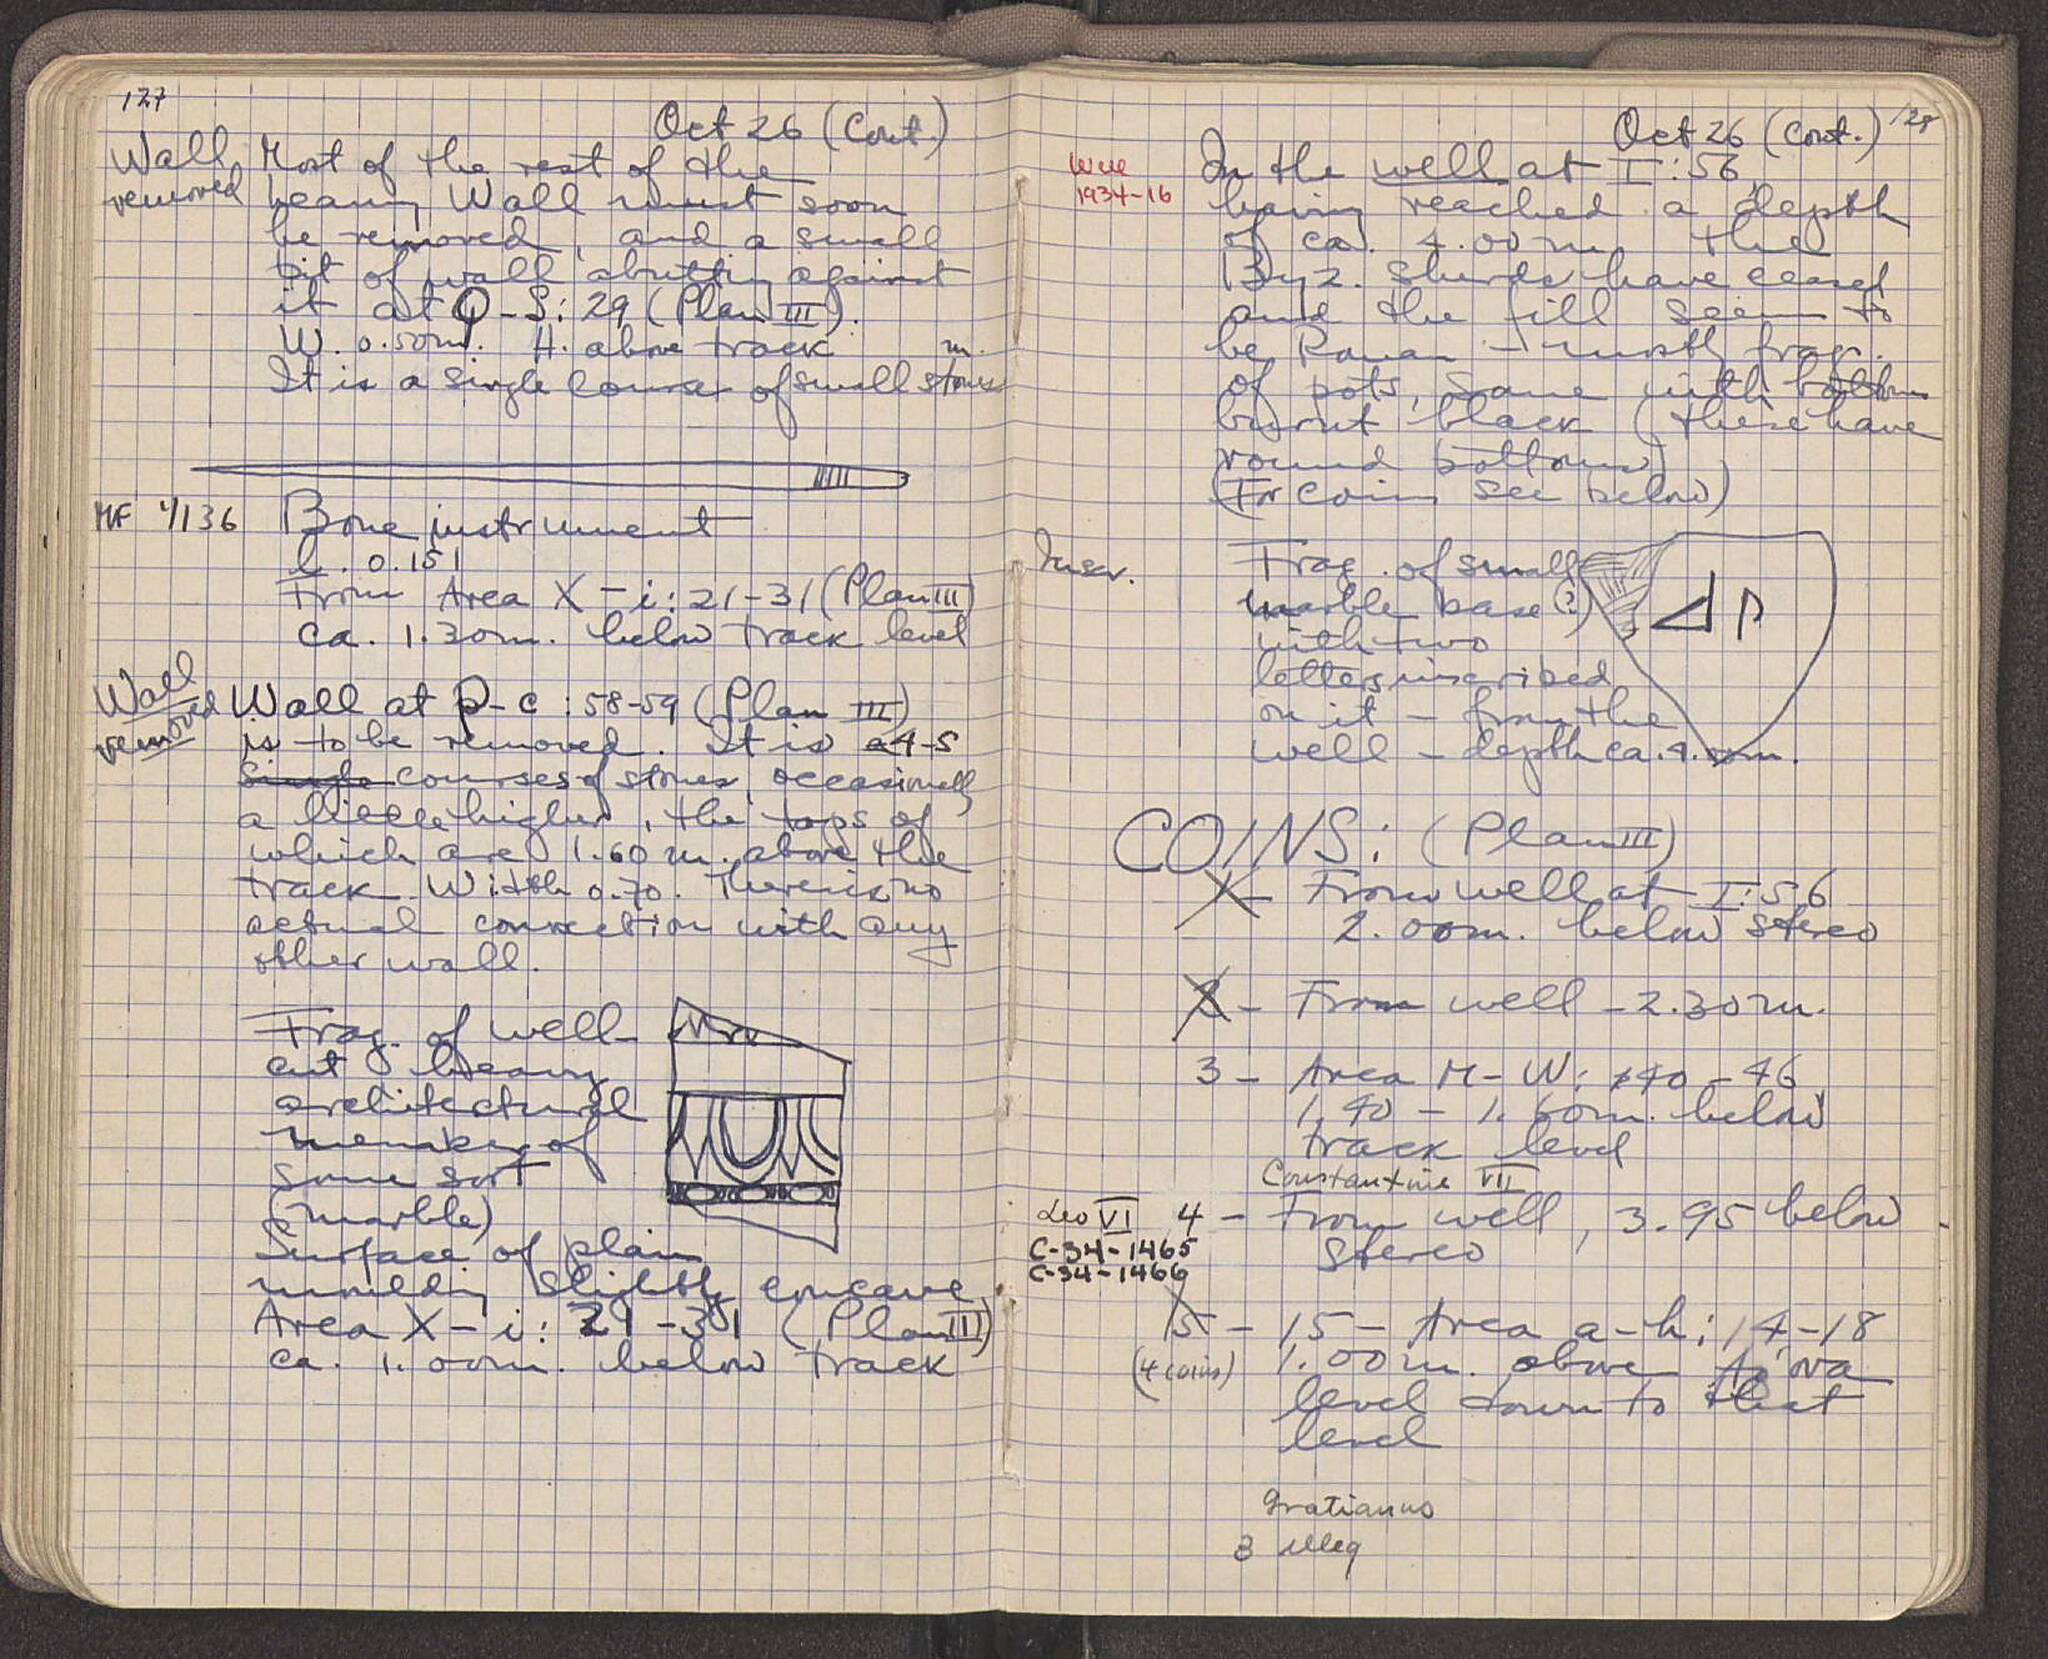 127
Oct 26 (Cont.)
Wall removed
Most of the rest of the
heavy Wall must soon
be removed, and a small
bit of wall abutting against
it at Q-S: 29 (Plan III).
W. 0.50m. H. above track m.
It is a single course of small stones
MF 4136
Bone instrument
L. 0.151
From Area X-i: 21-31 (Plan III)
ca. 1.30m. below track level
Wall removed
Wall at p-c: 58-59 (Plan III)
is to be removed. It is a 4-5
single courses of stones, occasionally
a little higher, the tops of
which are 1.60 m. above the
track. Width 0.70. There is no
actual connection with any
other wall.
Frag. of well-
cut heavy
architectural
member of
some sort
(marble)
Surface of plain
moulding slightly concave.
Area X-i: 21-31 (Plan III)
ca. 1.00m. below track
128
Oct 26 (Cont.)
Well
1934-16
In the well at I:56,
having reached a depth
of ca. 4.00 m. the
Byz. sherds have ceased
and the fill seems to
be Roman - mostly frag.
of pots, some with bottoms
burnt black (these have
round bottoms)
(For coins see below)
Inscr.
Frag. of small
marble base (?)
with two
letters inscribed
on it - from the
well - depth ca. 4.00m.
COINS: (Plan III)
1 - From well at I:56
2.00m. below stereo
2 - From well - 2.30m.
3 - Area M-W: 40-46
1.40 - 1.60m. below
track level
Constantine VII
Leo VI
4 - From well, 3.95 below
stereo
C-34-1465
C-34-1466
5 - 15 - Area a-h: 14-18
(4 coins)
1.00m. above Agora
level down to that
level
Gratianus
3 illeg